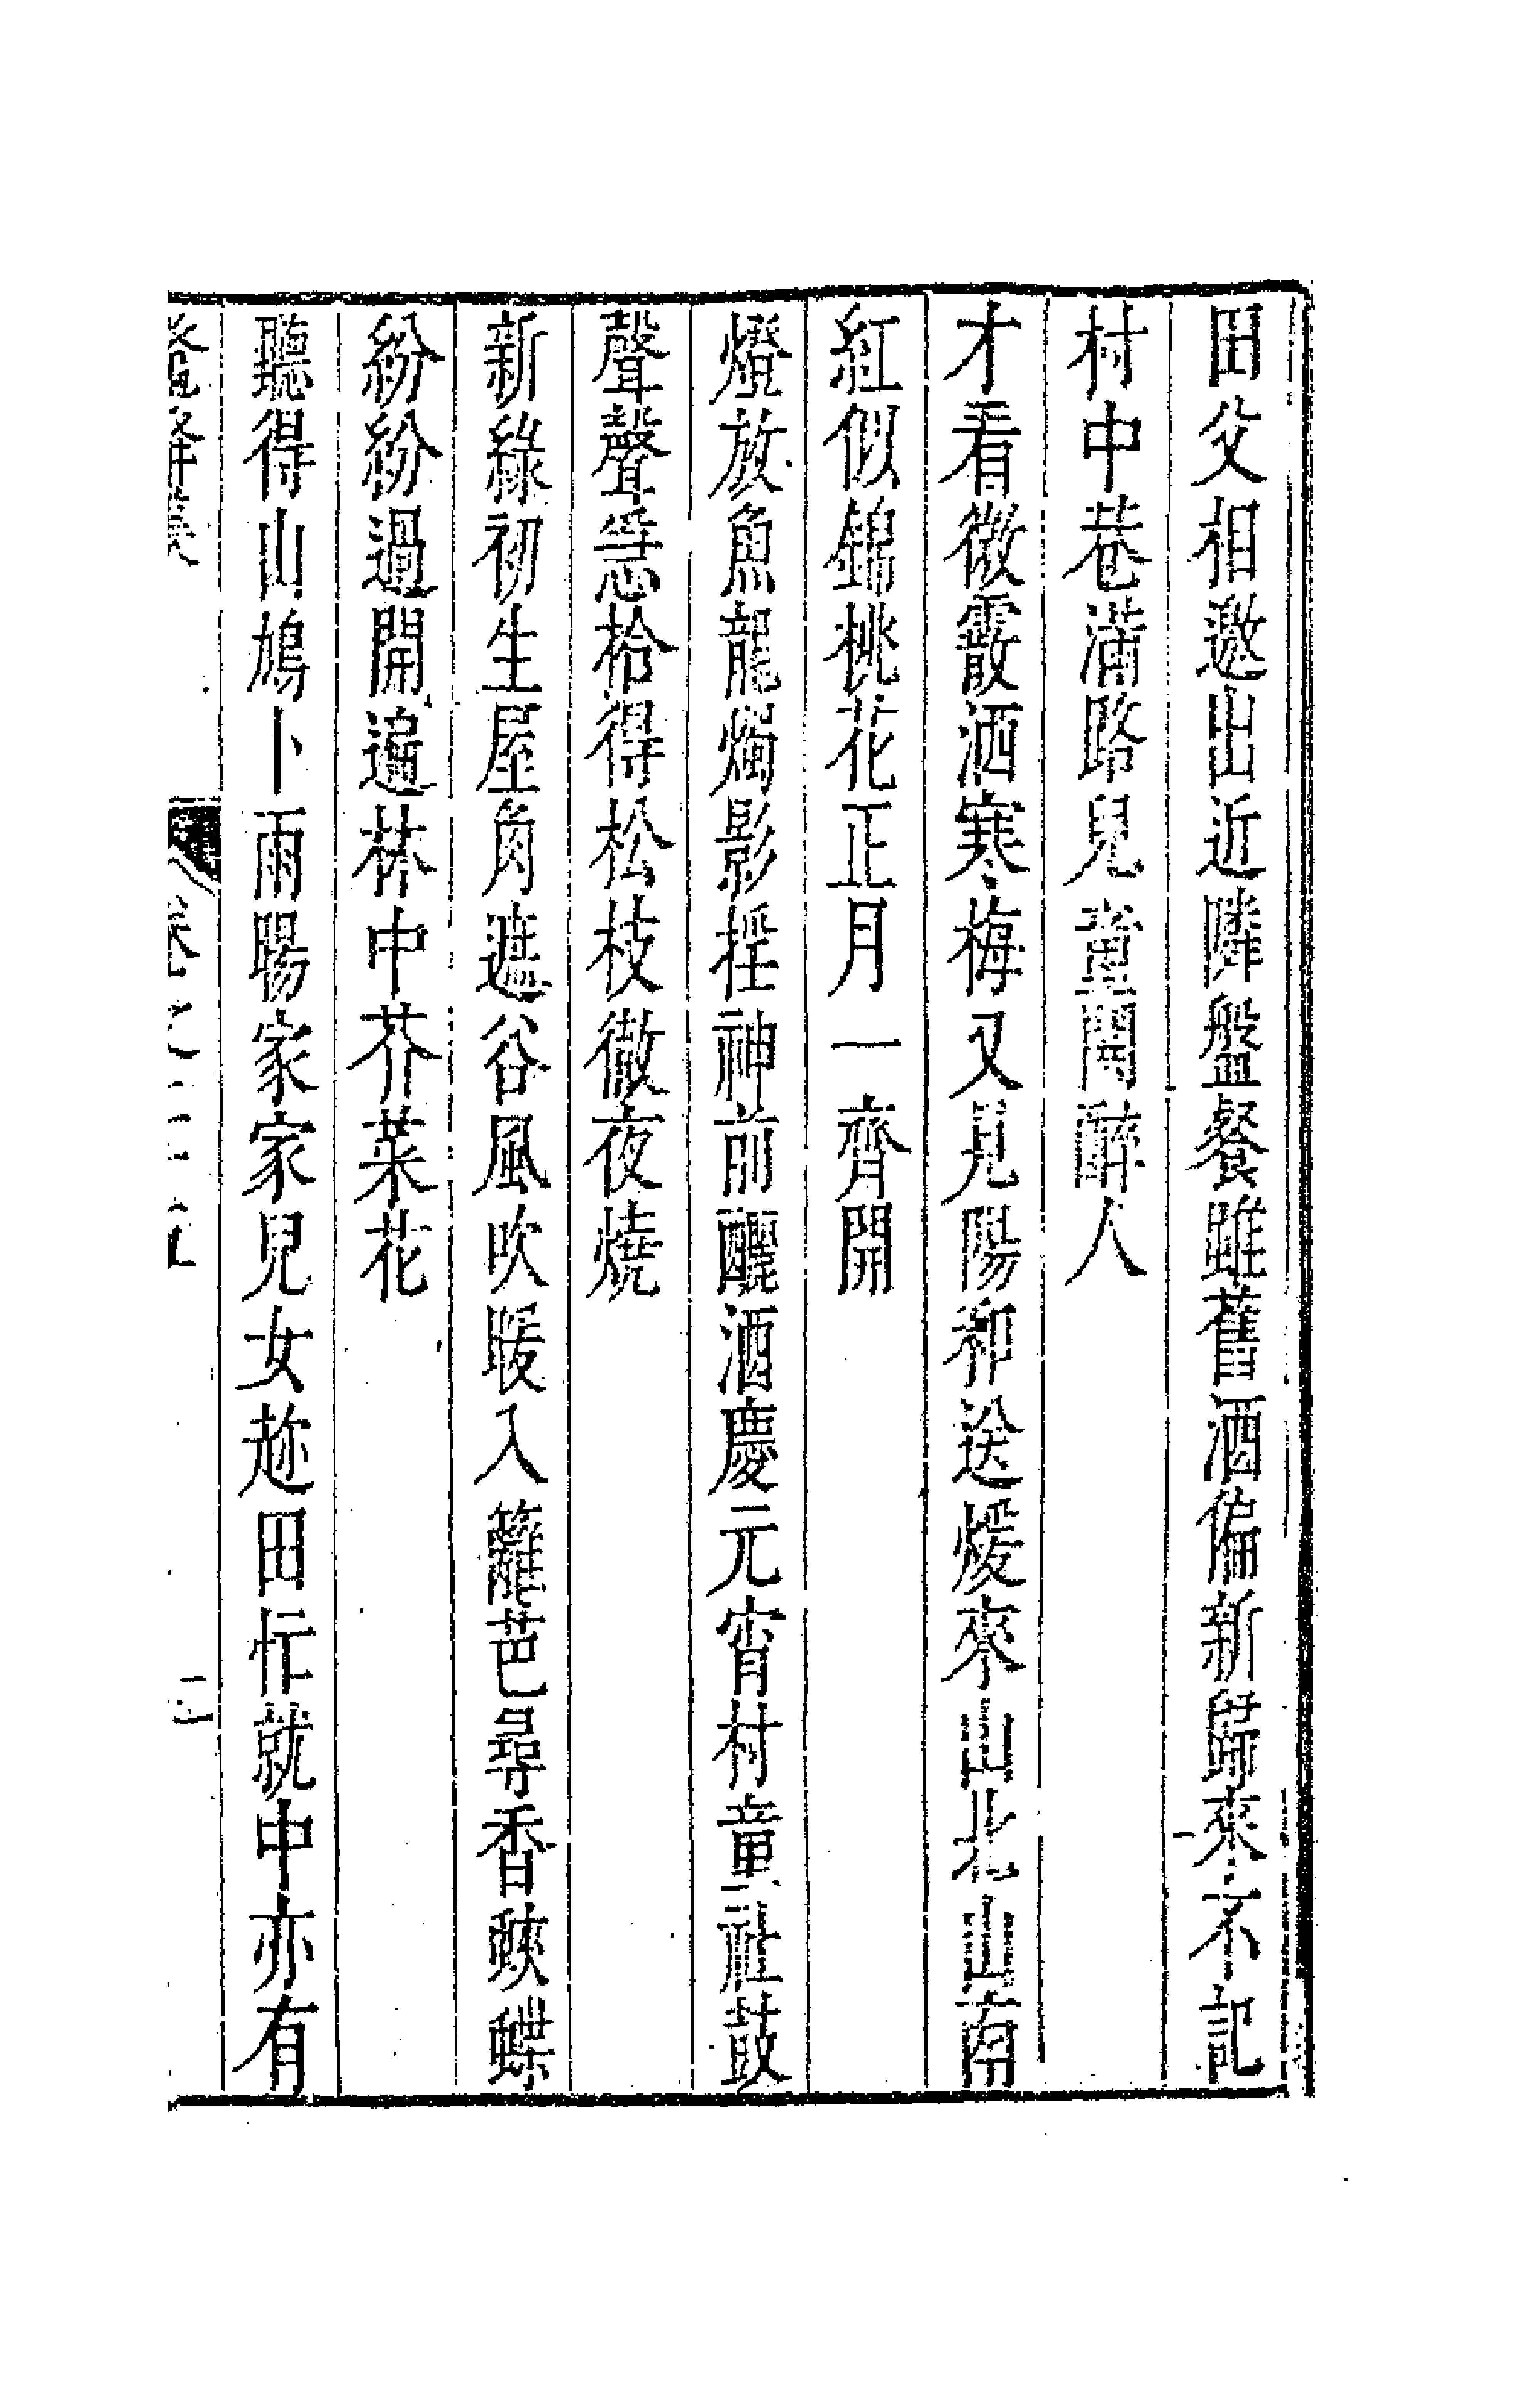 田父相邀出近隣盤餐雖舊酒偏新歸來不記
村中巷滿路兒童鬧醉人
才看微霰洒寒梅又見陽和送煖來山北山南
紅似錦桃花正月一齊開
燈放魚龍燭影搖神前釃酒慶元宵村童社鼓
聲聲急拾得松枝徹夜燒
新綠初生屋角遮谷風吹暖入籬芭尋香蛺蝶
紛紛過開遍林中芥菜花
聽得山鳩卜雨暘家家兒女趂田忙就中亦有
二